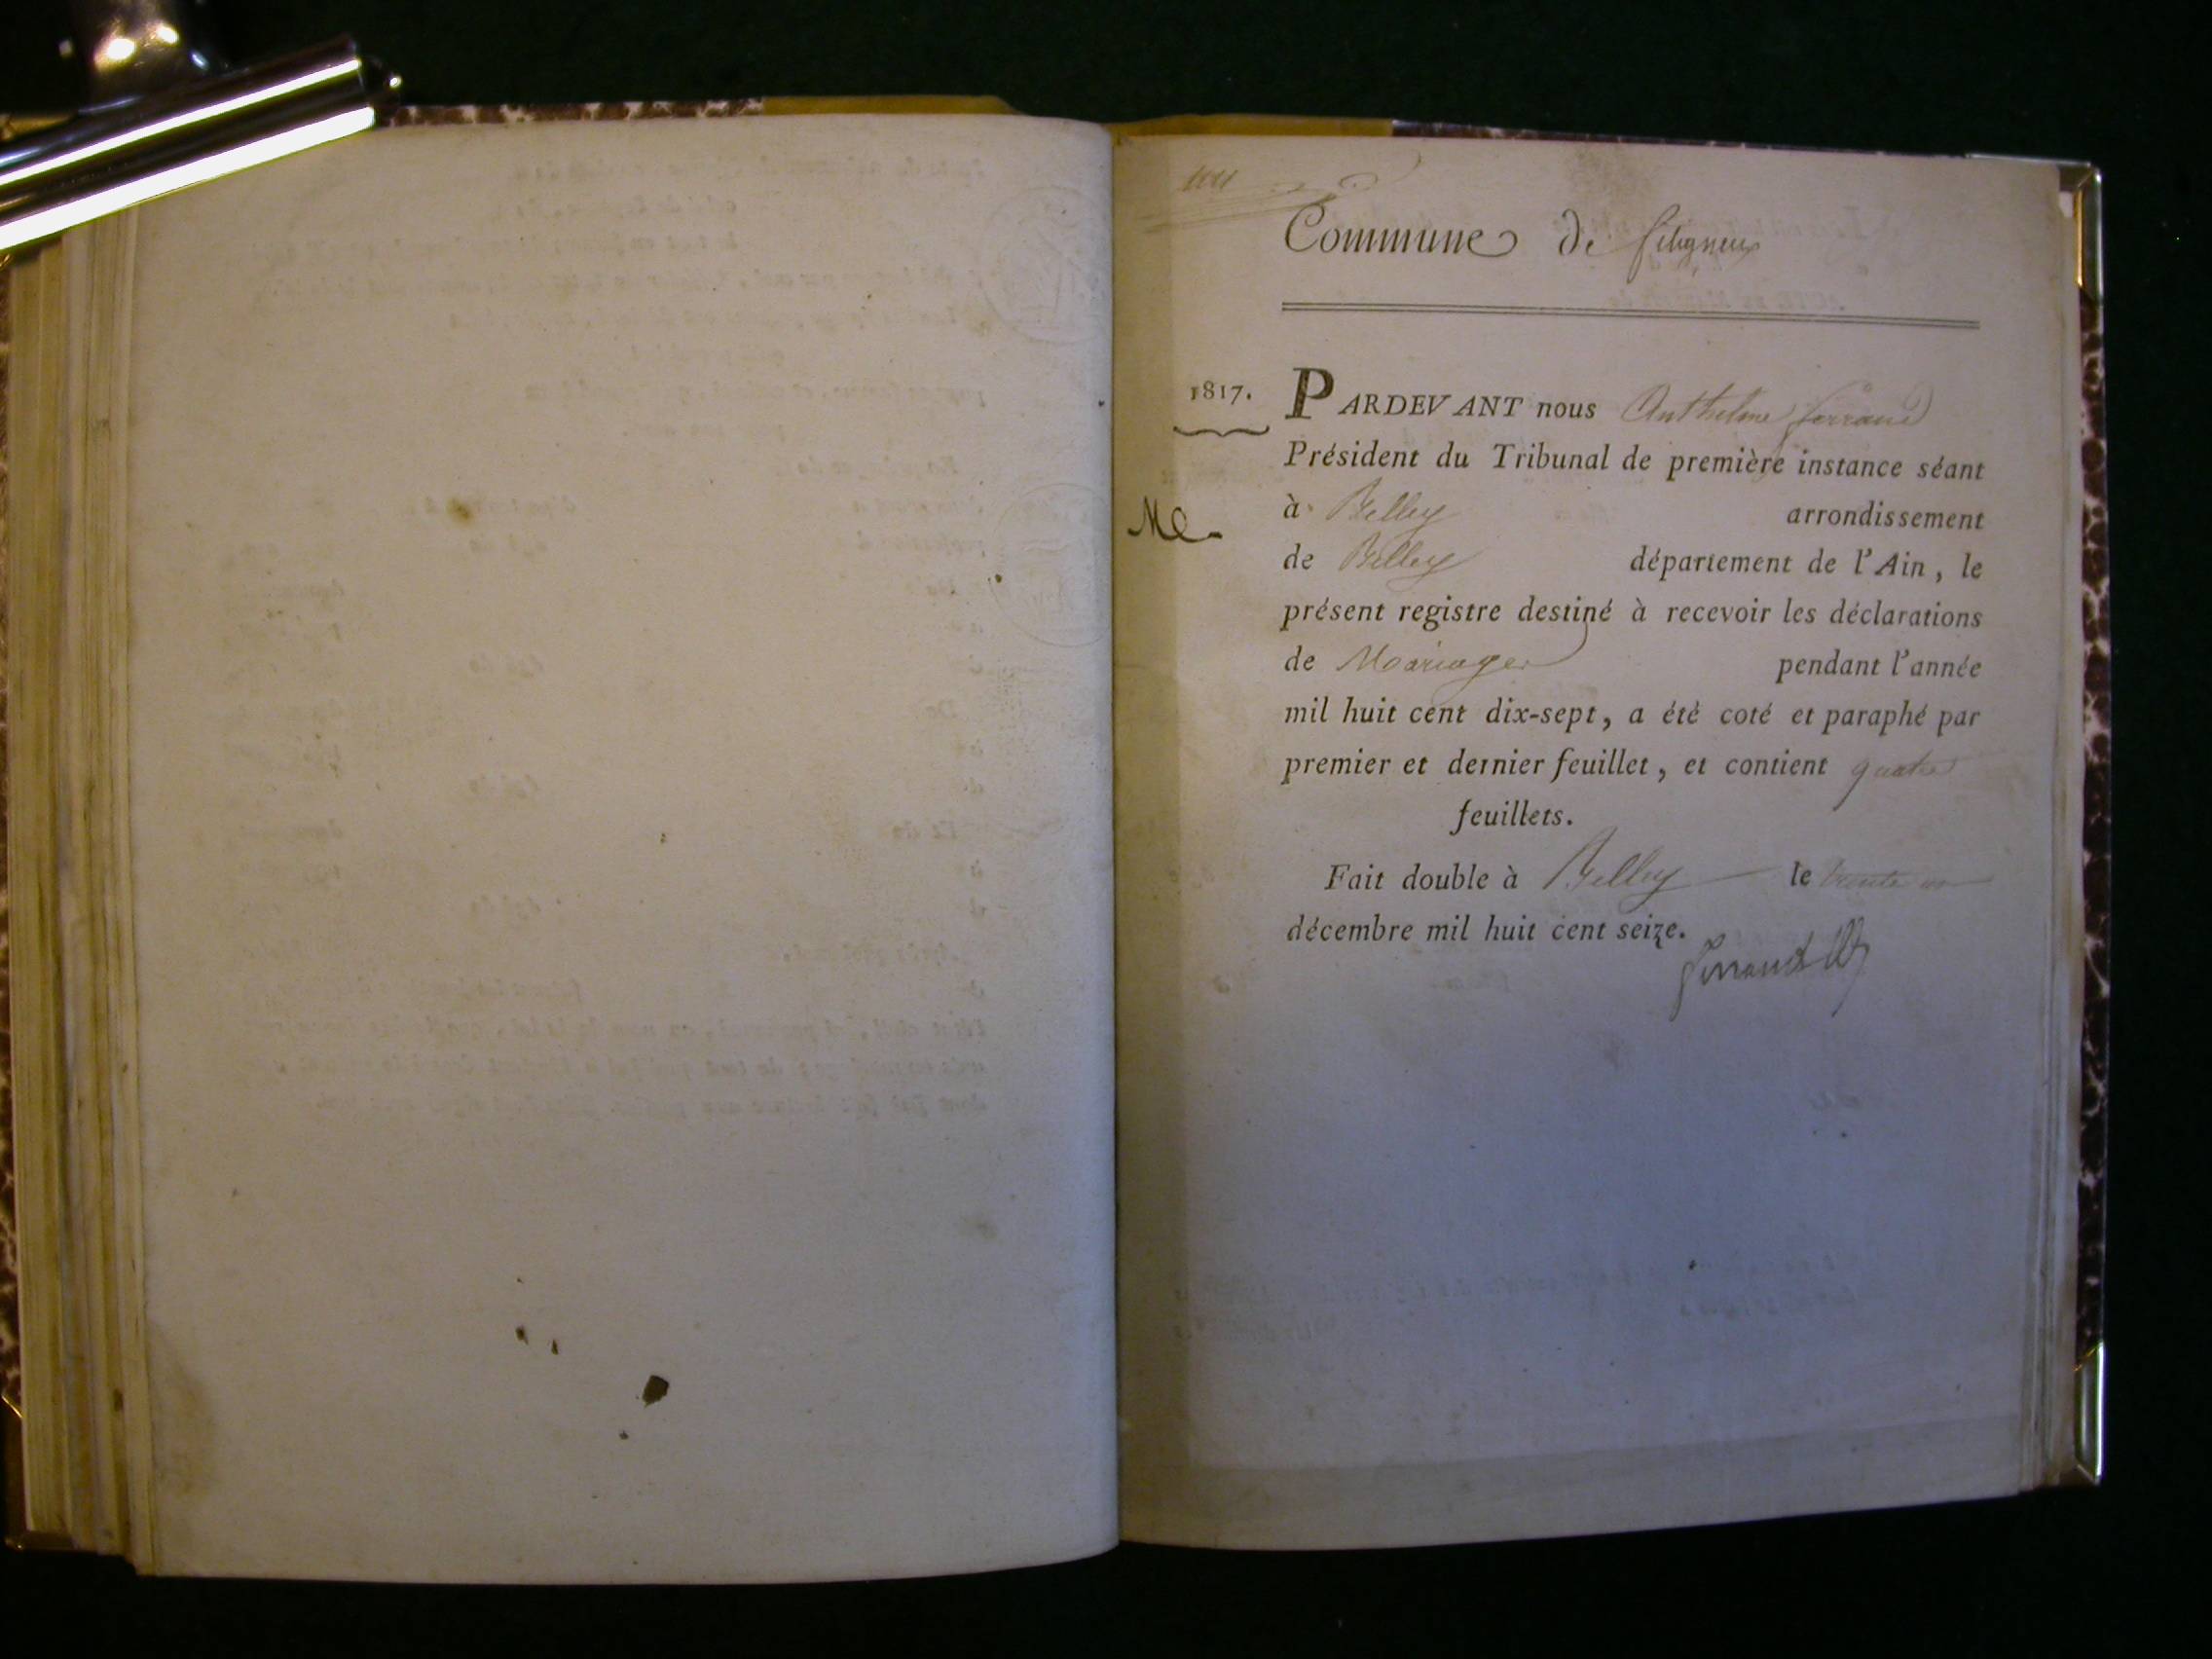 Commune de Seligneux
1817. PARDEVANT nous Anthelme ferrand
Président du Tribunal de première instance séant
à Belley arrondissement
Me
de Belley département de l'Ain, le
présent registre destiné à recevoir les déclarations
de Mariages pendant l'année
mil huit cent dix-sept, a été coté et paraphé par
premier et dernier feuillet, et contient quatre
feuillets.
Fait double à Belley le trente un
décembre mil huit cent seize.
ferrand